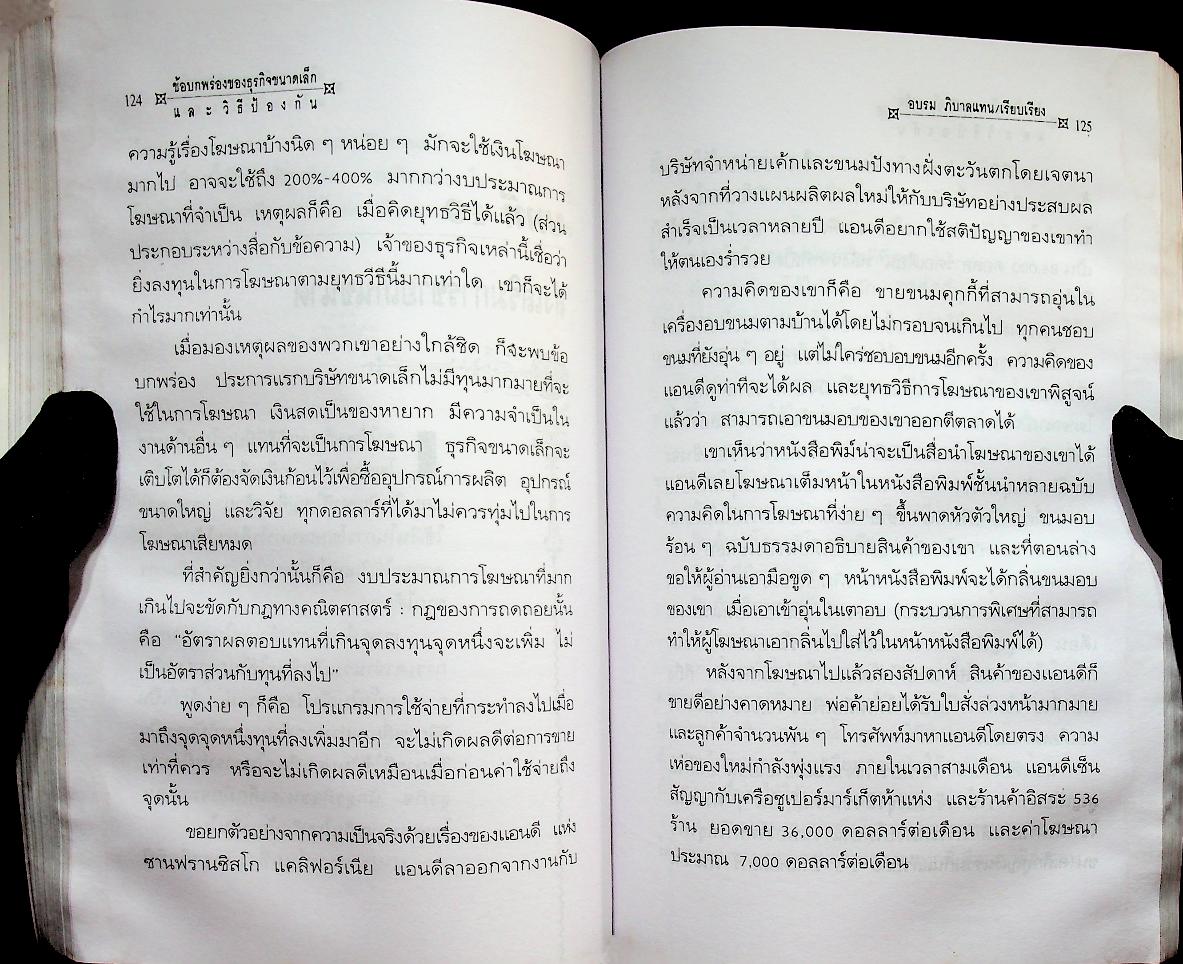 124
ข้อบกพร่องของธุรกิจขนาดเล็ก
และวิธีป้องกัน
ความรู้เรื่องโฆษณาบ้างนิด ๆ หน่อย ๆ มักจะใช้เงินโฆษณา
มากไป อาจจะใช้ถึง 200%-400% มากกว่างบประมาณการ
โฆษณาที่จำเป็น เหตุผลก็คือ เมื่อคิดยุทธวิธีได้แล้ว (ส่วน
ประกอบระหว่างสื่อกับข้อความ) เจ้าของธุรกิจเหล่านี้เชื่อว่า
ยิ่งลงทุนในการโฆษณาตามยุทธวีธีนี้มากเท่าใด เขาก็จะได้
กำไรมากเท่านั้น
เมื่อมองเหตุผลของพวกเขาอย่างใกล้ชิด ก็จะพบข้อ
บกพร่อง ประการแรกบริษัทขนาดเล็กไม่มีทุนมากมายที่จะ
ใช้ในการโฆษณา เงินสดเป็นของหายาก มีความจำเป็นใน
งานด้านอื่น ๆ แทนที่จะเป็นการโฆษณา ธุรกิจขนาดเล็กจะ
เติบโตได้ก็ต้องจัดเงินก้อนไว้เพื่อซื้ออุปกรณ์การผลิต อุปกรณ์
ขนาดใหญ่ และวิจัย ทุกดอลลาร์ที่ได้มาไม่ควรทุ่มไปในการ
โฆษณาเสียหมด
ที่สำคัญยิ่งกว่านั้นก็คือ งบประมาณการโฆษณาที่มาก
เกินไปจะขัดกับกฎทางคณิตศาสตร์ : กฎของการถดถอยนั้น
คือ "อัตราผลตอบแทนที่เกินจุดลงทุนจุดหนึ่งจะเพิ่ม ไม่
เป็นอัตราส่วนกับทุนที่ลงไป"
พูดง่าย ๆ ก็คือ โปรแกรมการใช้จ่ายที่กระทำลงไปเมื่อ
มาถึงจุดจุดหนึ่งทุนที่ลงเพิ่มมาอีก จะไม่เกิดผลดีต่อการขาย
เท่าที่ควร หรือจะไม่เกิดผลดีเหมือนเมื่อก่อนค่าใช้จ่ายถึง
จุดนั้น
ขอยกตัวอย่างจากความเป็นจริงด้วยเรื่องของแอนดี แห่ง
ซานฟรานซิสโก แคลิฟอร์เนีย แอนดีลาออกจากงานกับ
อบรม ภิบาลแทน/เรียบเรียง
125
บริษัทจำหน่ายเค้กและขนมปังทางฝั่งตะวันตกโดยเจตนา
หลังจากที่วางแผนผลิตผลใหม่ให้กับบริษัทอย่างประสบผล
สำเร็จเป็นเวลาหลายปี แอนดีอยากใช้สติปัญญาของเขาทำ
ให้ตนเองร่ำรวย
ความคิดของเขาก็คือ ขายขนมคุกกี้ที่สามารถอุ่นใน
เครื่องอบขนมตามบ้านได้โดยไม่กรอบจนเกินไป ทุกคนชอบ
ขนมที่ยังอุ่น ๆ อยู่ แต่ไม่ใคร่ชอบอบขนมอีกครั้ง ความคิดของ
แอนดีดูท่าทีจะได้ผล และยุทธวิธีการโฆษณาของเขาพิสูจน์
แล้วว่า สามารถเอาขนมอบของเขาออกตีตลาดได้
เขาเห็นว่าหนังสือพิมพ์น่าจะเป็นสื่อนำโฆษณาของเขาได้
แอนดีเลยโฆษณาเต็มหน้าในหนังสือพิมพ์ชั้นนำหลายฉบับ
ความคิดในการโฆษณาที่ง่าย ๆ ขึ้นพาดหัวตัวใหญ่ ขนมอบ
ร้อน ๆ ฉบับธรรมดาอธิบายสินค้าของเขา และที่ตอนล่าง
ขอให้ผู้อ่านเอามือขูด ๆ หน้าหนังสือพิมพ์จะได้กลิ่นขนมอบ
ของเขา เมื่อเอาเข้าอุ่นในเตาอบ (กระบวนการพิเศษที่สามารถ
ทำให้ผู้โฆษณาเอากลิ่นไปใส่ไว้ในหน้าหนังสือพิมพ์ได้)
หลังจากโฆษณาไปแล้วสองสัปดาห์ สินค้าของแอนดีก็
ขายดีอย่างคาดหมาย พ่อค้าย่อยได้รับใบสั่งล่วงหน้ามากมาย
และลูกค้าจำนวนพัน ๆ โทรศัพท์มาหาแอนดีโดยตรง ความ
เห่อของใหม่กำลังพุ่งแรง ภายในเวลาสามเดือน แอนดีเซ็น
สัญญากับเครือซูเปอร์มาร์เก็ตห้าแห่ง และร้านค้าอิสระ 536
ร้าน ยอดขาย 36,000 ดอลลาร์ต่อเดือน และค่าโฆษณา
ประมาณ 7,000 ดอลลาร์ต่อเดือน